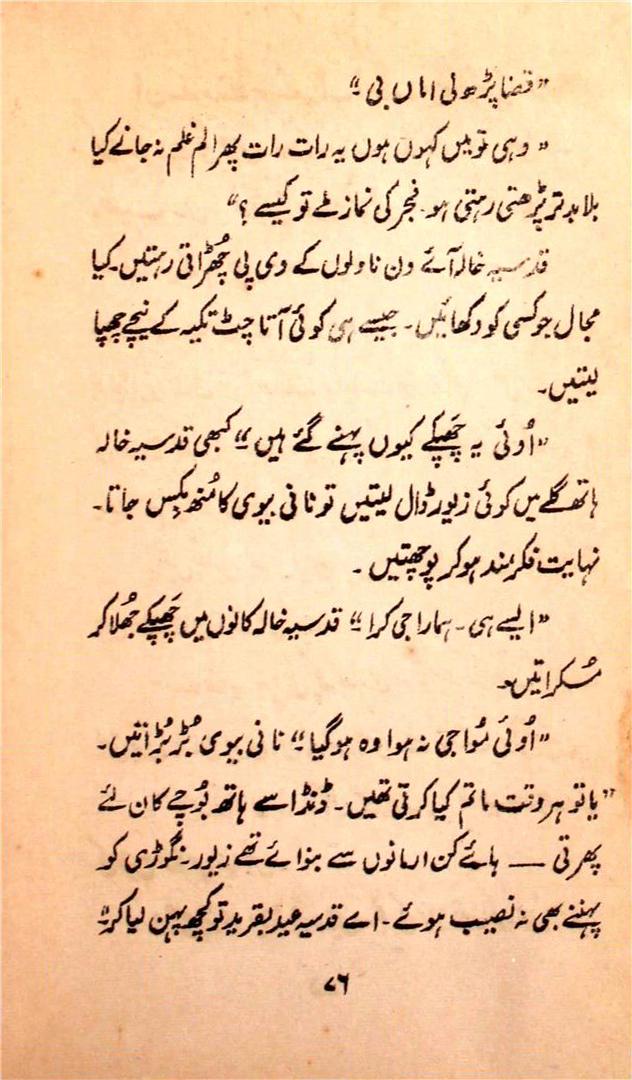 ”قضا پڑھ لی اماں بی“
”وہی تو میں کہوں ہوں یہ رات رات پھر الم غلم نہ جانے کیا
بلا بدتر پڑھتی رہتی ہو۔ فجر کی نماز ملے تو کیسے؟“
قدسیہ خالہ آئے دن ناولوں کے وی پی چُھڑاتی رہتیں۔ کیا
مجال جو کسی کو دکھائیں۔ جیسے ہی کوئی آتا چٹ تکیہ کے نیچے چھپا
لیتیں۔
”اُوئی یہ چَھپکے کیوں پہنے گئے ہیں“ کبھی قدسیہ خالہ
ہاتھ گلے میں کوئی زیور ڈال لیتیں تو نانی بیوی کا مُنھ بِکس جاتا۔
نہایت فکرمند ہوکر پوچھتیں۔
”ایسے ہی۔ ہمارا جی کرا“ قدسیہ خالہ کانوں میں چَھپکے جُھلا کر
مُسکراتیں۔
”اُوئی مُوا جی نہ ہوا وہ ہوگیا“ نانی بیوی بُڑبُڑاتیں۔
”یا تو ہر وقت ماتم کیا کرتی تھیں۔ ڈنڈا سے ہاتھ بُوچے کان لئے
پھرتی — ہائے کن ارمانوں سے بنوائے تھے زیور۔ نگوڑی کو
پہننے بھی نہ نصیب ہوئے۔ اے قدسیہ عید بقرعید تو کچھ پہن لیا کر“
۷۶